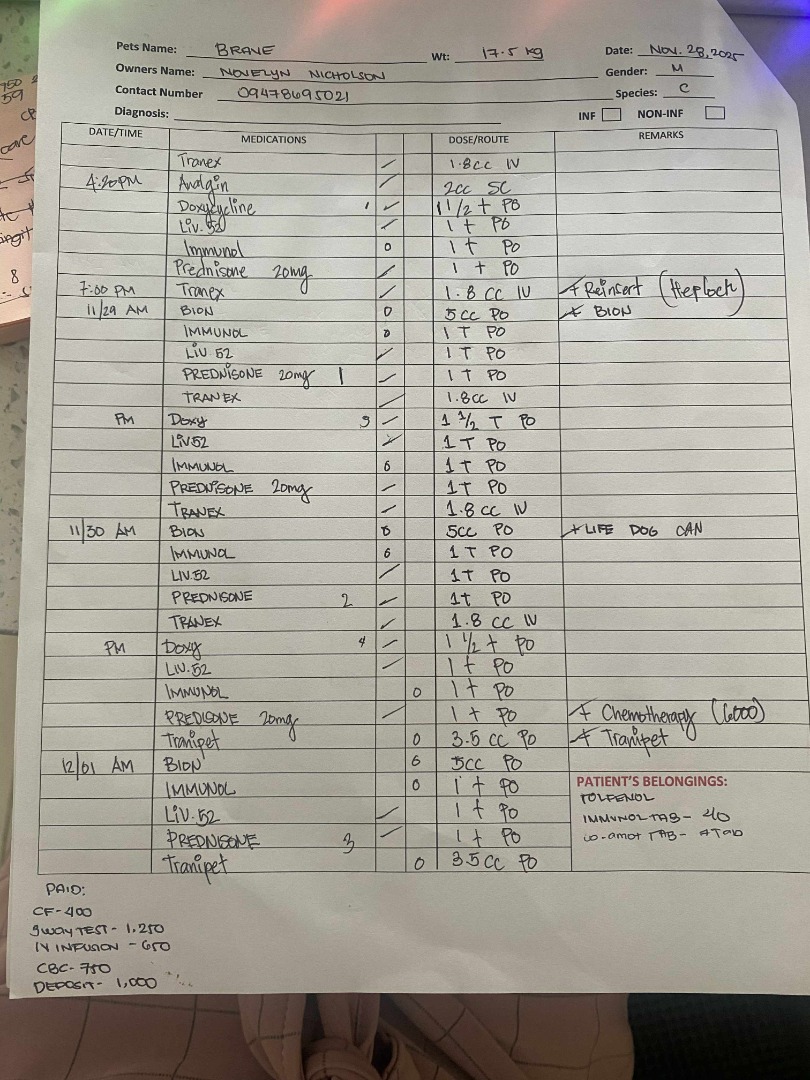 Pets Name: BRAVE Wt: 17.5 kg Date: Nov. 28, 2025
Owners Name: NOVELYN NICHOLSON Gender: M
Contact Number 09478695021 Species: C
Diagnosis: INF NON-INF
DATE/TIME MEDICATIONS DOSE/ROUTE REMARKS
Tranex 1.8cc IV
4:20PM Analgin 2cc SC
Doxycycline 1 1/2 t PO
Liv.52 1 t PO
Immunol 0 1 t PO
Prednisone 20mg 1 t PO
7:00 PM Tranex 1.8 cc IV Reinsert (Heplock)
11/29 AM BION 0 5cc PO BION
IMMUNOL 0 1 T PO
LIV 52 1 T PO
PREDNISONE 20mg 1 1 T PO
TRANEX 1.8cc IV
PM Doxy 3 1 1/2 T PO
LIV.52 1 T PO
IMMUNOL 0 1T PO
PREDNISONE 20mg 1T PO
TRANEX 1.8 cc IV
11/30 AM BION 0 5cc PO LIFE DOG CAN
IMMUNOL 0 1 T PO
LIV.52 1T PO
PREDNISONE 2 1t PO
TRANEX 1.8 CC IV
PM Doxy 4 1 1/2 t PO
LIV.52 1 t PO
IMMUNOL 0 1 t PO
PREDISONE 20mg 1 t PO Chemotherapy (6000)
Tranipet 0 3.5 cc PO Tranipet
12/01 AM BION 0 5cc PO
IMMUNOL 0 1 t PO
LIV.52 1 t PO
PREDNISONE 3 1 t PO
Tranipet 0 3.5 cc PO
PATIENT'S BELONGINGS:
TOLFENOL
IMMUNOL TAB - 40
co-amox TAB - 4 Tab
PAID:
CF-400
3way TEST - 1,250
IV INFUSION - 650
CBC- 750
DEPOSIT- 1,000